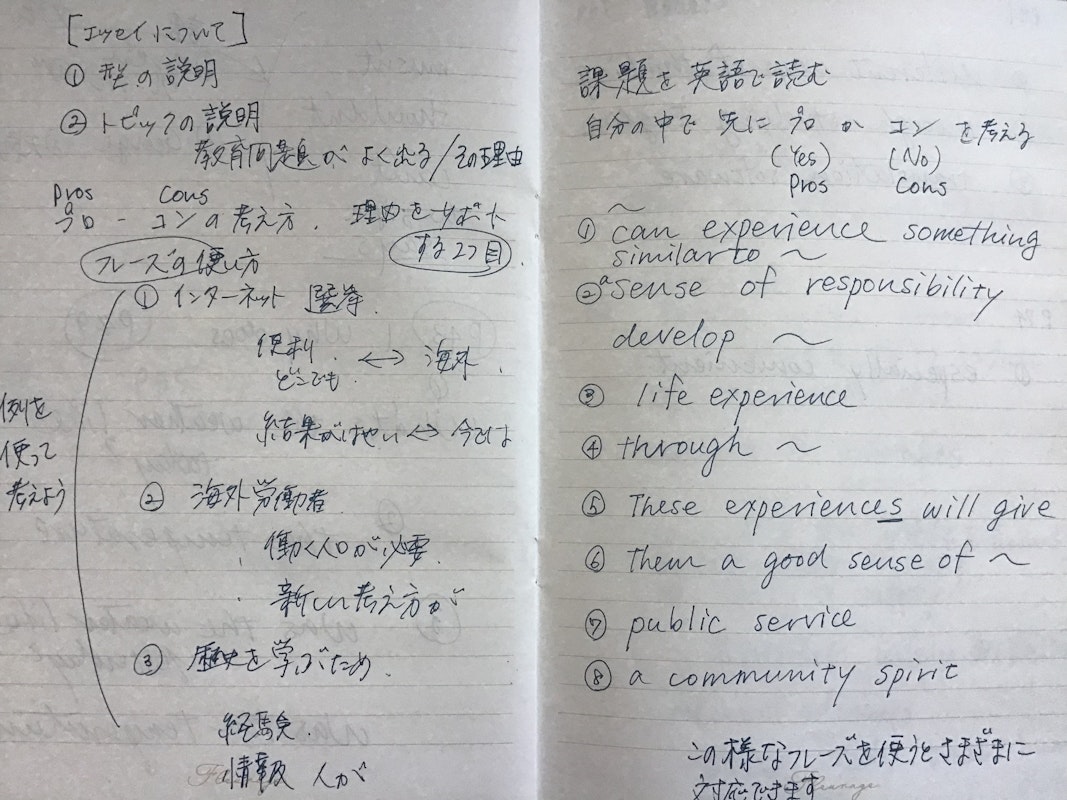 [エッセイについて]
① 型の説明
② トピックの説明
教育問題がよく出る/その理由
Pros Cons
プロ - コンの考え方. 理由をサポート
する2つ目.
フレーズの使い方
① インターネット 選挙.
便利. ⟷ 海外.
どこでも.
結果がはやい ⟷ 今では
例を
使って
考えよう
② 海外労働者
・働く人口が必要.
・新しい考え方が
③ 歴史を学ぶため.
経験.
情報 人が
課題を英語で読む
自分の中で 先に プロ か コン を考える
(Yes) (No)
Pros Cons
~
① can experience something
similar to ~
② a sense of responsibility
develop ~
③ life experience
④ through ~
⑤ These experiences will give
⑥ Them a good sense of ~
⑦ public service
⑧ a community spirit
この様なフレーズを使うとさまざまに
対応できます